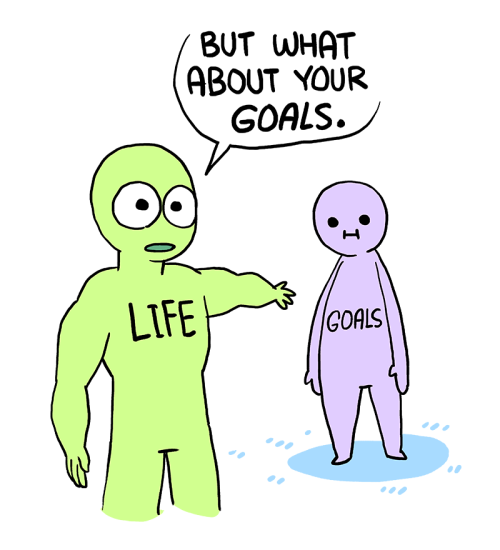 BUT WHAT
ABOUT YOUR
GOALS.
LIFE
GOALS